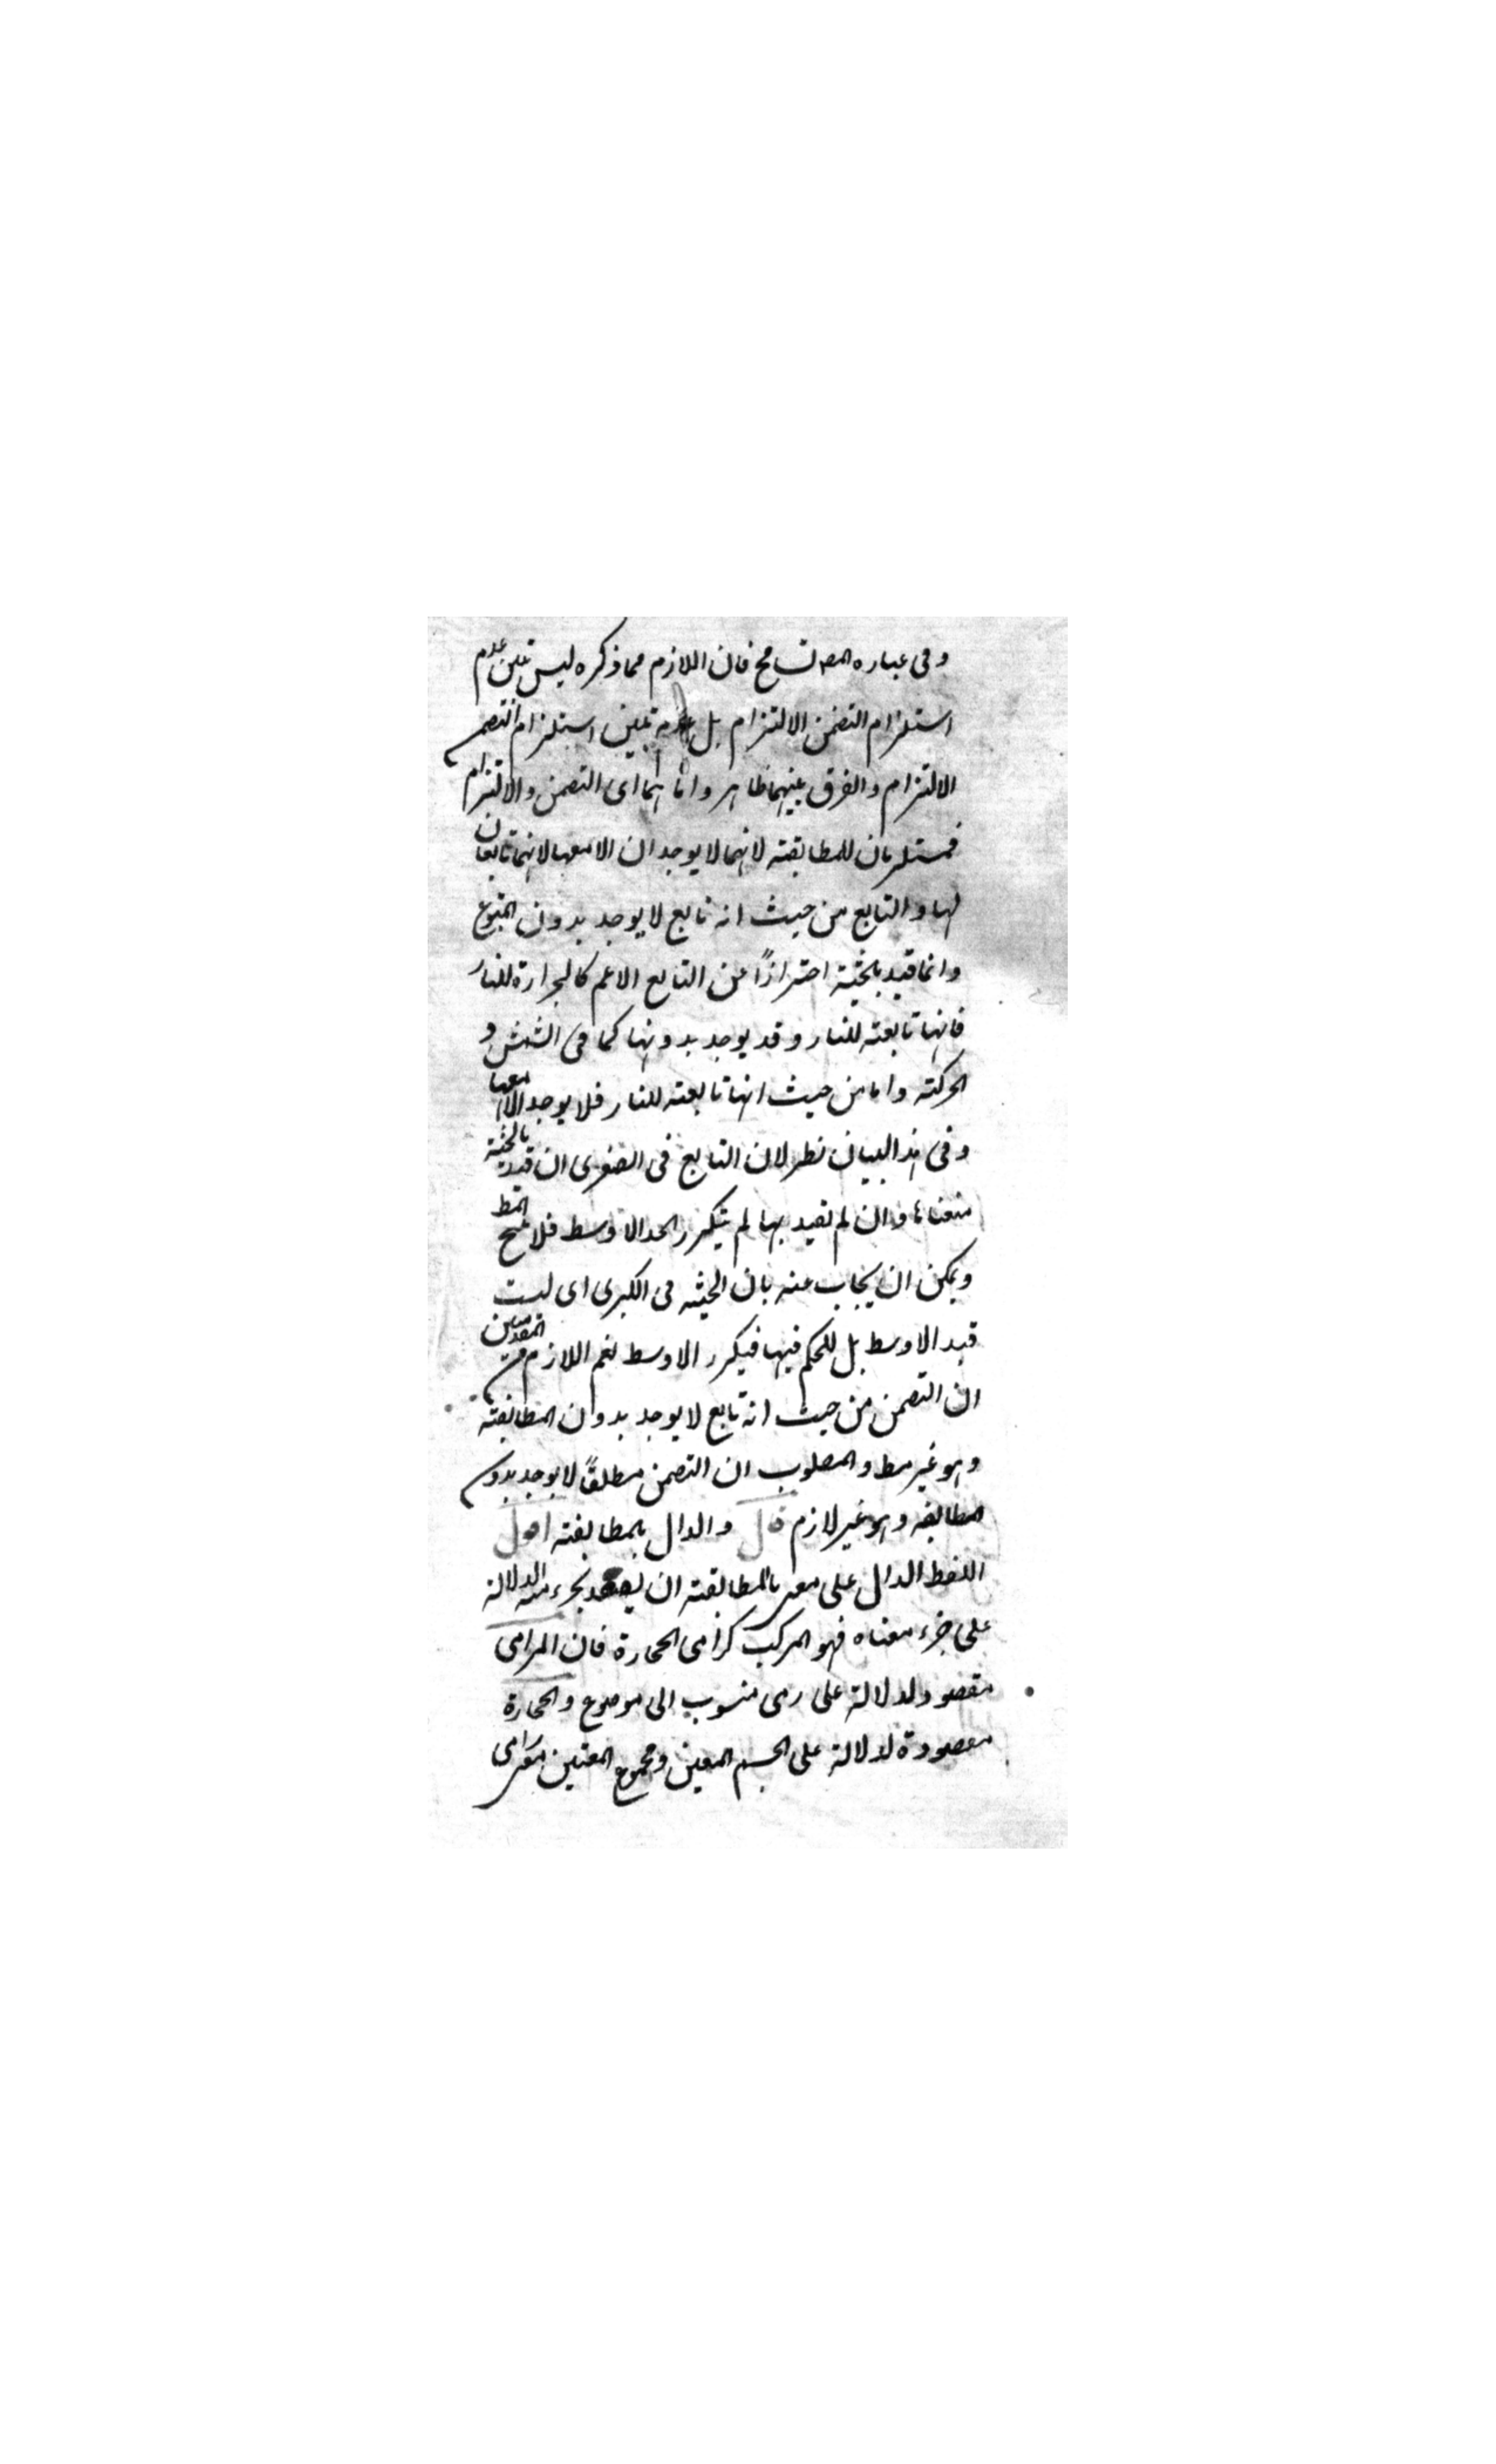 وفى عباره المصـ تسامح فان اللازم مما ذكره ليس تبين عدم
استلزام التضمن الالتزام بل عدم تبين استلزام التضمن
الالتزام والفرق بينهما ظاهر واما هما اى التضمن والالتزام
فمستلزمان للمطابقة لانهما لا يوجدان الا معها لانهما تابعان
لها والتابع من حيث انه تابع لا يوجد بدون المتبوع
وانما قيد بالحيثية احترازًا عن التابع الاعم كالحرارة للنار
فانها تابعة للنار وقد يوجد بدونها كما فى الشمس و
الحركة واما من حيث انها تابعة للنار فلا يوجد الا معها
وفى هذا البيان نظر لان التابع فى الصغرى ان قيد بالحيثية
منعناها وان لم تقيد بها لم يتكرر الحد الاوسط فلا ينتج المط
ويمكن ان يجاب عنه بان الحيثية فى الكبرى اى ليست
قيد الاوسط بل للحكم فيها فيتكرر الاوسط نعم اللازم من المقدمتين
ان التضمن من حيث انه تابع لا يوجد بدون المطابقة
وهو غير مط والمطلوب ان التضمن مطلقًا لا يوجد بدون
المطابقة وهو غير لازم قال والدال بالمطابقة اقول
اللفظ الدال على معنى بالمطابقة ان يقصد بجزء منه الدلالة
على جزء معناه فهو المركب كرامى الحجارة فان الرامى
مقصود لدلالة على رمى منسوب الى موضوع والحجارة
مقصودة لدلالة على الجسم المعين ومجموع المعنيين معنى رامى